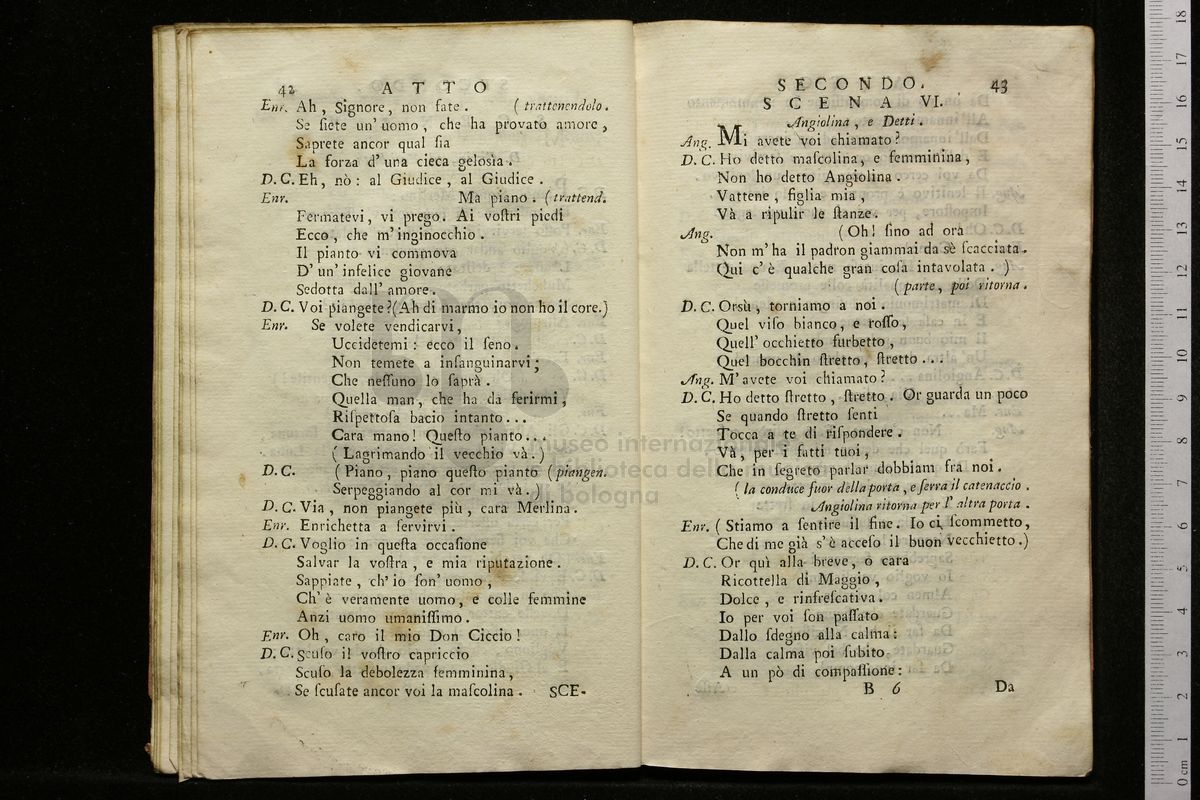 42 ATTO
Enr. Ah, Signore, non fate. (trattenendolo.
Se ſiete un' uomo, che ha provato amore,
Saprete ancor qual ſia
La forza d' una cieca geloſia.
D. C. Eh, nò: al Giudice, al Giudice.
Enr. Ma piano. (trattend.
Fermatevi, vi prego. Ai voſtri piedi
Ecco, che m' inginocchio.
Il pianto vi commova
D' un' infelice giovane
Sedotta dall' amore.
D. C. Voi piangete?(Ah di marmo io non ho il core.)
Enr. Se volete vendicarvi,
Uccidetemi: ecco il ſeno.
Non temete a inſanguinarvi;
Che neſſuno lo ſaprà.
Quella man, che ha da ferirmi,
Riſpettoſa bacio intanto...
Cara mano! Queſto pianto...
(Lagrimando il vecchio và.)
D. C. (Piano, piano queſto pianto (piangen.
Serpeggiando al cor mi và.)
D. C. Via, non piangete più, cara Merlina.
Enr. Enrichetta a ſervirvi.
D. C. Voglio in queſta occaſione
Salvar la voſtra, e mia riputazione.
Sappiate, ch' io ſon' uomo,
Ch' è veramente uomo, e colle femmine
Anzi uomo umaniſſimo.
Enr. Oh, caro il mio Don Ciccio!
D. C. Scuſo il voſtro capriccio
Scuſo la debolezza femminina,
Se ſcuſate ancor voi la maſcolina. SCE-
SECONDO. 43
SCENA VI.
Angiolina, e Detti.
Ang. Mi avete voi chiamato?
D. C. Ho detto maſcolina, e femminina,
Non ho detto Angiolina.
Vattene, figlia mia,
Và a ripulir le ſtanze.
Ang. (Oh! ſino ad ora
Non m' ha il padron giammai da sè ſcacciata.
Qui c' è qualche gran coſa intavolata.)
(parte, poi ritorna.
D. C. Orsù, torniamo a noi.
Quel viſo bianco, e roſſo,
Quell' occhietto furbetto,
Quel bocchin ſtretto, ſtretto...
Ang. M' avete voi chiamato?
D. C. Ho detto ſtretto, ſtretto. Or guarda un poco
Se quando ſtretto ſenti
Tocca a te di riſpondere.
Và, per i fatti tuoi,
Che in ſegreto parlar dobbiam fra noi.
(la conduce fuor della porta, e ſerra il catenaccio.
Angiolina ritorna per l' altra porta.
Enr. (Stiamo a ſentire il fine. Io ci ſcommetto,
Che di me già s' è acceſo il buon vecchietto.)
D. C. Or quì alla breve, o cara
Ricottella di Maggio,
Dolce, e rinfreſcativa.
Io per voi ſon paſſato
Dallo ſdegno alla calma:
Dalla calma poi ſubito,
A un pò di compaſſione:
B 6 Da
museo internazionale
e biblioteca della musica
di bologna
0 cm 1 2 3 4 5 6 7 8 9 10 11 12 13 14 15 16 17 18